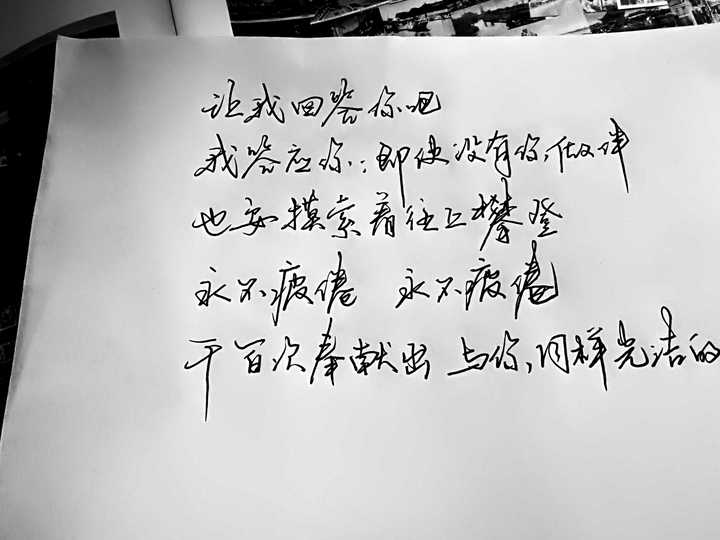 让我回答你吧
我答应你:即使没有你做伴
也要摸索着往上攀登
永不疲倦 永不疲倦
千百次奉献出 与你同样光洁的